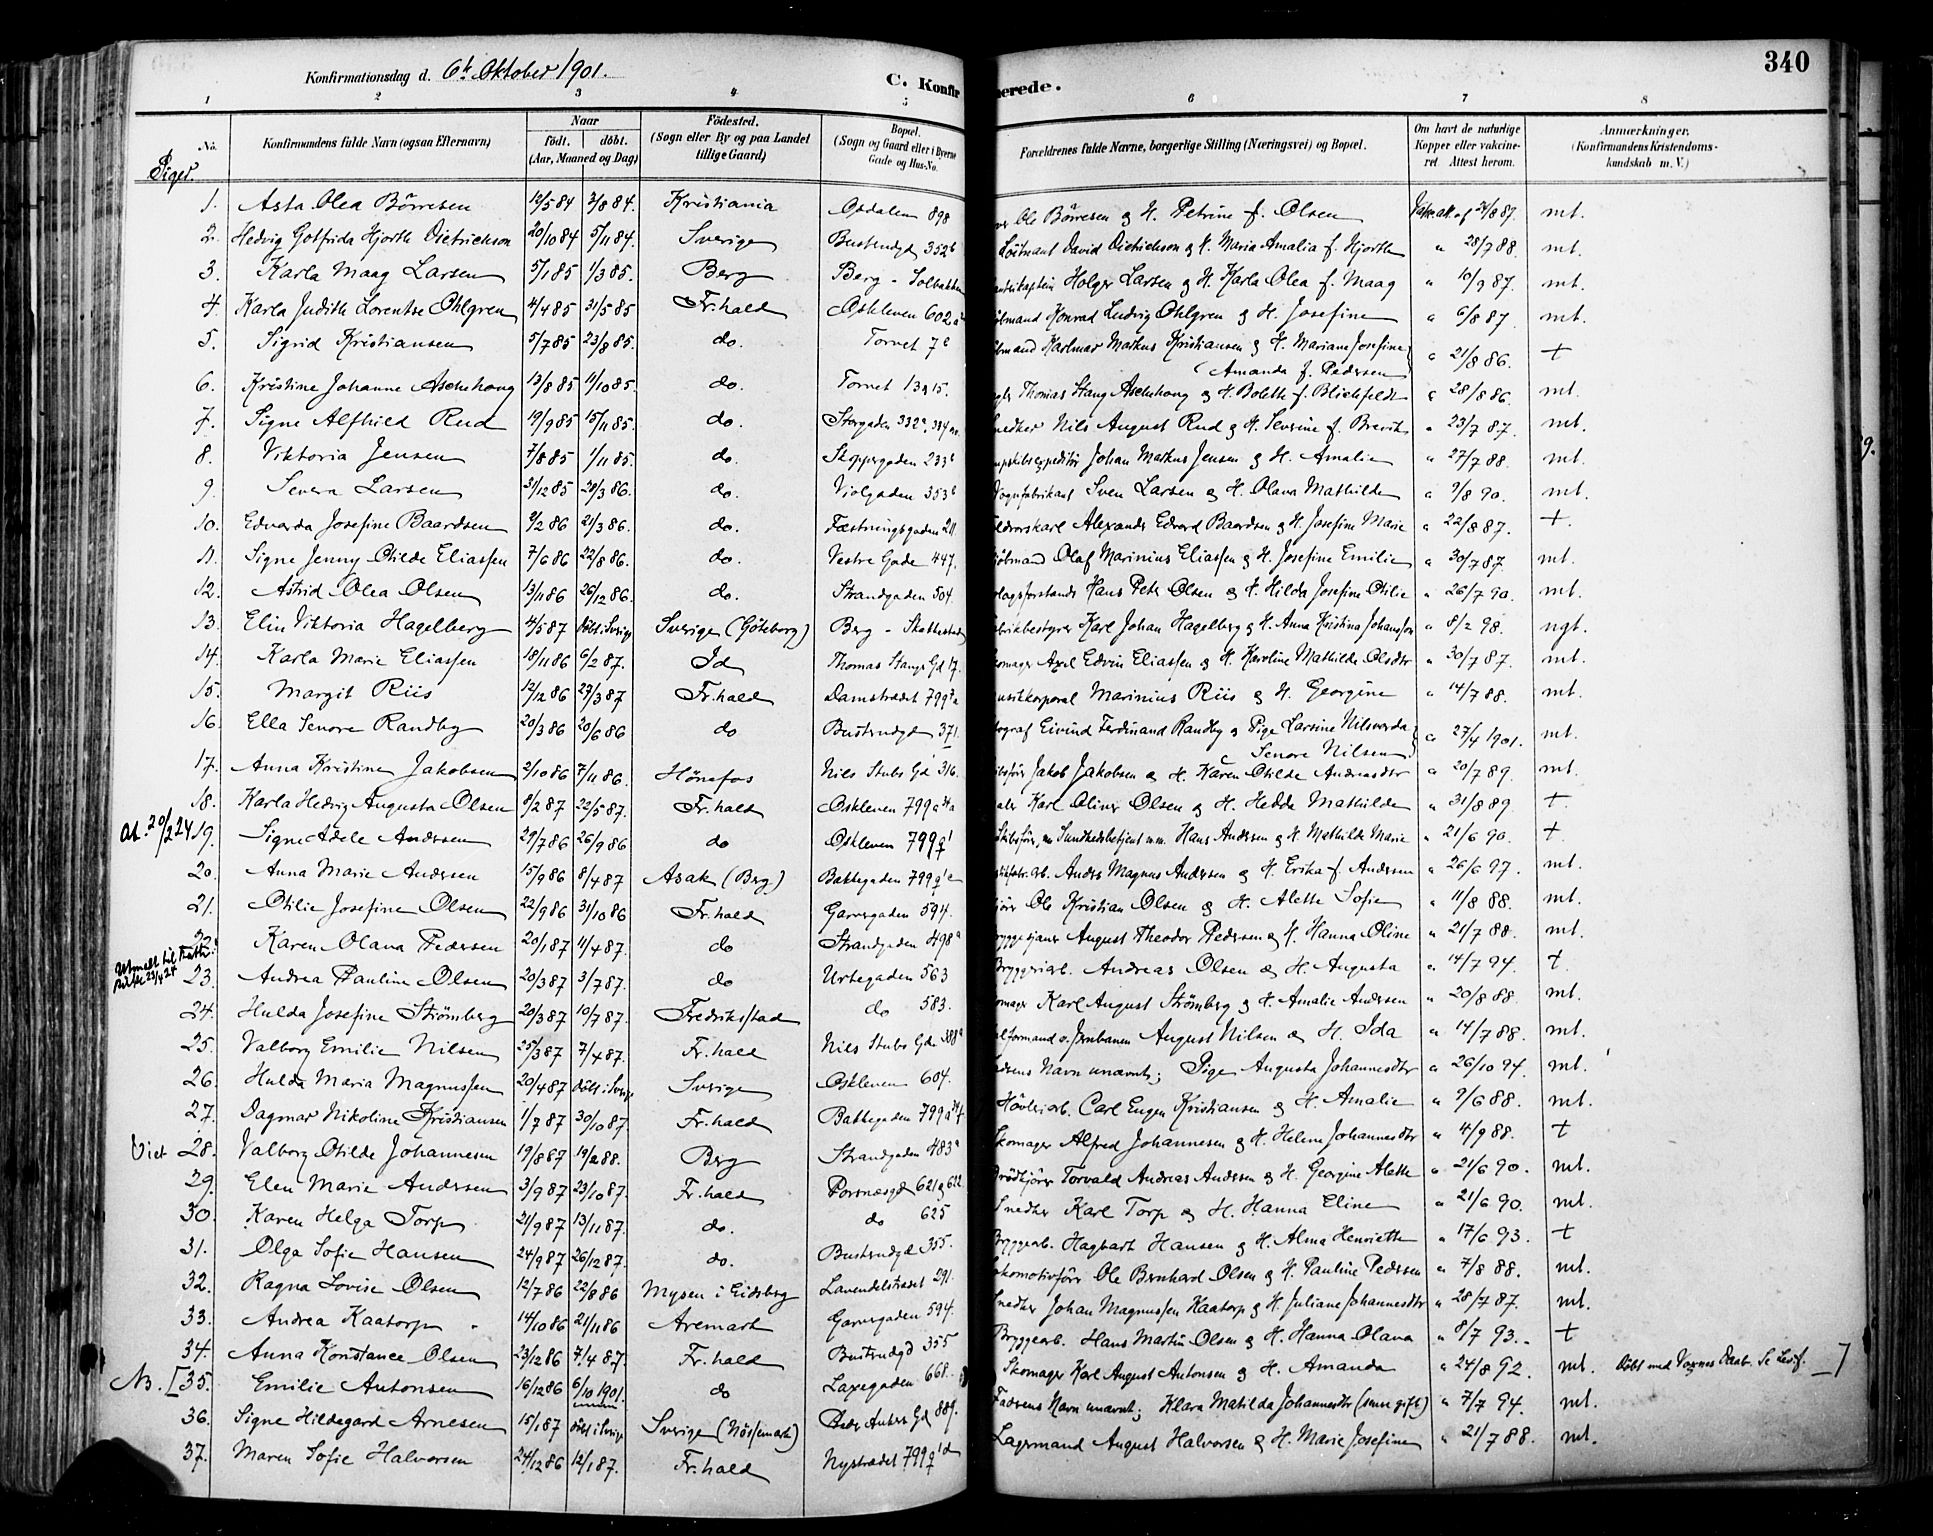 340
Konfirmationsdag d. 6te Oktober 1901.
C. Konfir merede.
1 2 3 4 5 6 7 8
No. Konfirmandens fulde Navn (ogsaa Efternavn) Naar født. døbt. (Aar, Maaned og Dag) Fødested. (Sogn eller By og paa Landet tillige Gaard) Bopæl. (Sogn og Gaard eller i Byerne Gade og Hus-No. Forældrenes fulde Navne, borgerlige Stilling (Næringsvei) og Bopæl. Om havt de naturlige Kopper eller vakcineret. Attest herom. Anmærkninger. (Konfirmandens Kristendomskundskab m. V.)
Piger.
1. Asta Olea Börresen 12/5 84 3/8 84. Kristiania Osdalen 898 Ole Börresen & H. Petrine f. Olsen 24/8 87. mt.
2. Hedvig Gotfrida Hjorth Dietrichson 20/10 84 5/11 84. Sverige Busterudgd 352b Löitnant David Dietrichson & H. Maria Amalia f. Hjorth " 28/7 88. mt.
3. Karla Maag Larsen 5/1 85 1/3 85. Berg Berg - Solbakken Holger Larsen & H. Karla Olea f. Maag " 10/9 87. mt.
4. Karla Judith Lorentse Ohlgren 4/4 85 31/5 85 Fr.hald Oskleven 602 Konrad Ludvig Ohlgren & H. Josefine " 6/8 87. mt.
5. Sigrid Kristiansen 5/7 85 23/8 85. do. Torvet 7c Karlmar Markus Kristiansen & H. Mariane Josefine Amanda f. Pedersen " 21/8 86. +
6. Kristine Johanne Aschehoug 13/8 85 11/10 85. do. Torvet 13 & 15. Thomas Stang Aschehoug & H. Bolette f. Blichfeldt " 28/8 86. mt.
7. Signe Alfhild Rud 19/9 85 15/11 85. do. Storgaden 332a, 334 Nils August Rud & H. Severine f. Brevik " 23/7 87. mt.
8. Viktoria Jensen 7/8 85 1/11 85. do. Skippergaden 233b Johan Markus Jensen & H. Amalie " 27/7 88. mt.
9. Severa Larsen 31/12 85 28/3 86. do. Violgaden 353b Vognfabrikant Sven Larsen & H. Olava Mathilde " 9/8 90. mt.
10. Edvarda Josefine Baardsen 9/2 86 21/3 86. do. Fæstningsgaden 211 Alexander Edvard Baardsen & H. Josefine Marie " 22/8 87. +.
11. Signe Jenny Otilde Eliassen 7/6 86 22/8 86. do. Vestre Gade 447. Olaf Marinius Eliassen & H. Josefine Emilie " 30/7 87. mt.
12. Astrid Olea Olsen 13/11 86 26/12 86. do. Strandgaden 504. Hans Peter Olsen & H. Hilda Josefine Otilie " 26/7 90. mt.
13. Elin Viktoria Hagelberg 4/5 87 Döbt i Sverige Sverige (Göteborg) Berg - Skattestad Karl Johan Hagelberg & H. Anna Kristina Johansson " 8/2 98. mgt.
14. Karla Marie Eliassen 18/11 86 6/2 87. Id Thomas Stangs Gd 17. Axel Edvin Eliassen & H. Karoline Mathilde Olsdtr " 30/7 87. mt.
15. Margit Riis 12/12 86 27/3 87 Fr.hald Damstrædet 799 Marinius Riis & H. Georgine " 14/7 88. mt.
16. Ella Senore Randby 20/3 86 20/6 86 do Busterudgd 371. Eivind Ferdinand Randby & Pige Larsine Nilsverda Senore Nilsen " 27/4 1901. mt.
17. Anna Kristine Jakobsen 2/10 86 7/11 86. Hönefos Nils Stubs Gd 316. Jakob Jakobsen & H. Karen Otilde Andreasdtr " 20/7 89. mt.
18. Karla Hedvig Augusta Olsen 8/2 87 22/5 87. Fr.hald Oskleven 799 Karl Oliver Olsen & H. Hedda Mathilde " 31/8 89. +.
At. 20/2 24 19. Signe Adele Andersen 29/7 86 26/9 86 do Oskleven 799 Sundhedsbetjent m.m. Hans Andersen & H. Mathilde Marie " 21/6 90. +
20. Anna Marie Andersen 15/9 86 8/4 87 Asak (Berg) Bakkegaden 799 Anders Magnus Andersen & H. Erika f. Andersen " 26/6 97. mt.
21. Otilie Josefine Olsen 22/9 86 31/10 86 Fr.hald Garvergaden 594. Ole Kristian Olsen & H. Alette Sofie " 11/8 88. mt.
22. Karen Olava Pedersen 20/1 87 11/4 87. do Strandgaden 498a August Theodor Pedersen & H. Hanna Oline " 21/7 88. mt.
Utmeldt til Kath. 23. Andrea Pauline Olsen 20/3 87 3/7 87. do Urtegaden 563 Bryggeriarb. Andreas Olsen & H. Augusta " 14/7 94. +
24. Hulda Josefine Strömberg 20/3 87 10/7 87. Fredriksstad do 583. Karl August Strömberg & H. Amalie Andersen " 20/8 88. mt.
25. Valborg Emilie Nilsen 25/3 87 7/4 87. Fr.hald Nils Stubs Gd. v. Jernbanen August Nilsen & H. Ida " 14/7 88. mt.
26. Hulda Maria Magnussen 20/4 87 Döbt i Sverige Sverige Oskleven 604. Navn unævnt; Pige Augusta Johannesdtr " 26/10 94. mt.
27. Dagmar Nikoline Kristiansen 1/7 87 30/10 87. Fr.hald Bakkegaden 799 Hövleriarb. Carl Eugen Kristiansen & H. Amalie " 9/6 88. mt.
Viet 28. Valborg Otilde Johannesen 19/8 87 19/2 88. Berg Strandgaden 483a Skomager Alfred Johannesen & H. Helene Johannesdtr " 4/9 88. +
29. Elen Marie Andersen 3/9 87 23/10 87. Fr.hald Porsnæsgd 621 & 622 Torvald Andreas Andersen & H. Georgine Alette " 21/6 90. mt.
30. Karen Helga Torp 21/9 87 13/11 87. do. do 625 Snedker Karl Torp & H. Hanna Eline " 21/6 90. mt.
31. Olga Sofie Hansen 24/9 87 26/12 87. do. Busterudgd 355. Bryggearb. Hagbart Hansen & H. Alma Henriette " 17/6 93. +
32. Ragna Lovise Olsen 12/7 86 22/8 86 Mysen i Eidsberg Lavendelstrædet 291. Lokomotivförer Ole Bernhard Olsen & H. Pauline Pedersen " 7/8 88. mt.
33. Andrea Kaatorp 14/10 86 21/11 86 Aremark Garvergaden 594. Snedker Johan Magnussen Kaatorp & H. Juliane Johannesdtr " 28/7 87. mt.
34. Anna Konstance Olsen 23/12 86 7/4 87. Fr.hald Busterudgd 355 Bryggearb. Hans Martin Olsen & H. Hanna Olava " 8/7 93. +
Nb. [35. Emilie Antonsen 16/12 86 6/10 1901. do Laxegaden 668. Skomager Karl August Antonsen & H. Amanda " 24/8 92. mt. Döbt ved Voxnes Daab. Se ]
36. Signe Hildegard Arnesen 15/1 87 Döbt i Sverige Sverige (Nössemark) Peder Ankers Gd 889. Faderens Navn unævnt; Klara Matilda Johannesdtr (senere gift) " 7/7 94. mt.
37. Maren Sofie Halvorsen 24/12 86 12/1 87. Fr.hald Nystrædet 799 Lagermand August Halvorsen & H. Marie Josefine " 21/7 88. mt.